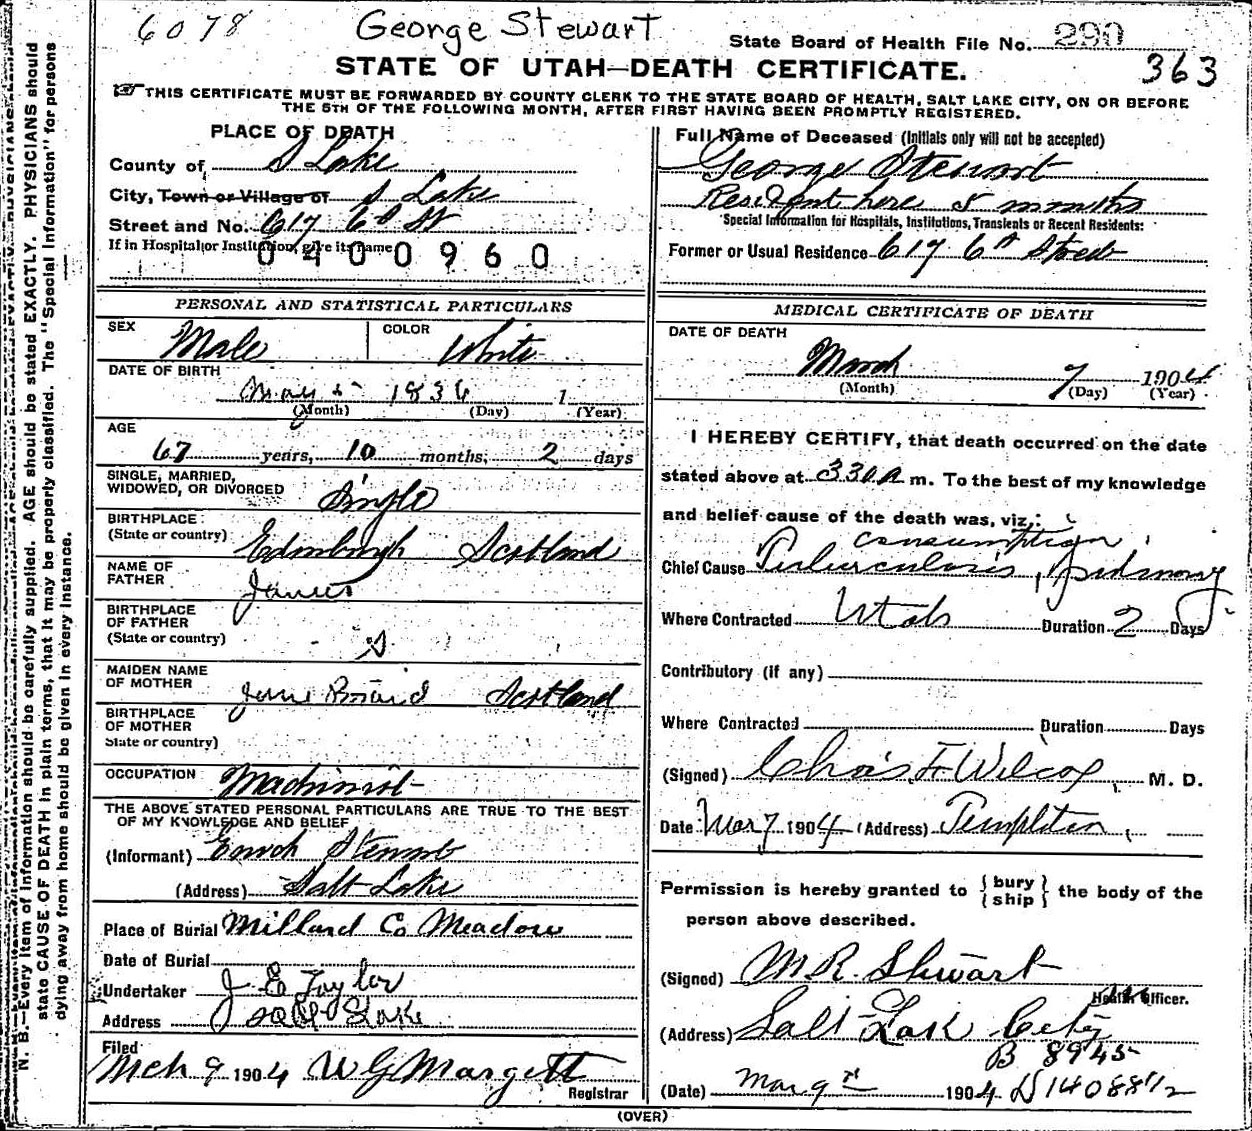 6078 George Stewart
State Board of Health File No. 290
363
STATE OF UTAH—DEATH CERTIFICATE.
THIS CERTIFICATE MUST BE FORWARDED BY COUNTY CLERK TO THE STATE BOARD OF HEALTH, SALT LAKE CITY, ON OR BEFORE
THE 5TH OF THE FOLLOWING MONTH, AFTER FIRST HAVING BEEN PROMPTLY REGISTERED.
PLACE OF DEATH
County of S Lake
City, Town or Village of S Lake
Street and No. 617 6th St
If in Hospital or Institution, give its name
0400960
Full Name of Deceased (Initials only will not be accepted)
George Stewart
Resident here 5 months
Special Information for Hospitals, Institutions, Transients or Recent Residents:
Former or Usual Residence 617 6th Street
PERSONAL AND STATISTICAL PARTICULARS
SEX Male COLOR White
DATE OF BIRTH
May 5 1836 1
(Month) (Day) (Year)
AGE
67 years, 10 months, 2 days
SINGLE, MARRIED,
WIDOWED, OR DIVORCED Single
BIRTHPLACE
(State or country) Edinburgh Scotland
NAME OF
FATHER James
BIRTHPLACE
OF FATHER
(State or country) S
MAIDEN NAME
OF MOTHER Jane Scotland
BIRTHPLACE
OF MOTHER
State or country)
OCCUPATION Machinist
THE ABOVE STATED PERSONAL PARTICULARS ARE TRUE TO THE BEST
OF MY KNOWLEDGE AND BELIEF
(Informant) Enoch Stewart
(Address) Salt Lake
Place of Burial Millard Co Meadow
Date of Burial
Undertaker J E Taylor
Address Salt Lake
Filed
Mch 9 1904 W G Margett
Registrar
MEDICAL CERTIFICATE OF DEATH
DATE OF DEATH
March 7 1904
(Month) (Day) (Year)
I HEREBY CERTIFY, that death occurred on the date
stated above at 330 A m. To the best of my knowledge
and belief cause of the death was, viz,:
consumption
Chief Cause Tuberculosis, pulmonary
Where Contracted Utah Duration 2 Days
Contributory (if any)
Where Contracted Duration Days
(Signed) Chas F Wilcox, M. D.
Date Mar 7 1904 (Address) Templeton,
Permission is hereby granted to {bury
ship} the body of the
person above described.
(Signed) M R Stewart
Health Officer.
(Address) Salt Lake City
B 8945
(Date) Mar 9th 1904 D 14088 1/2
(OVER)
N. B.—Every item of information should be carefully supplied. AGE should be stated EXACTLY. PHYSICIANS should
state CAUSE OF DEATH in plain terms, that it may be properly classified. The "Special Information" for persons
dying away from home should be given in every instance.